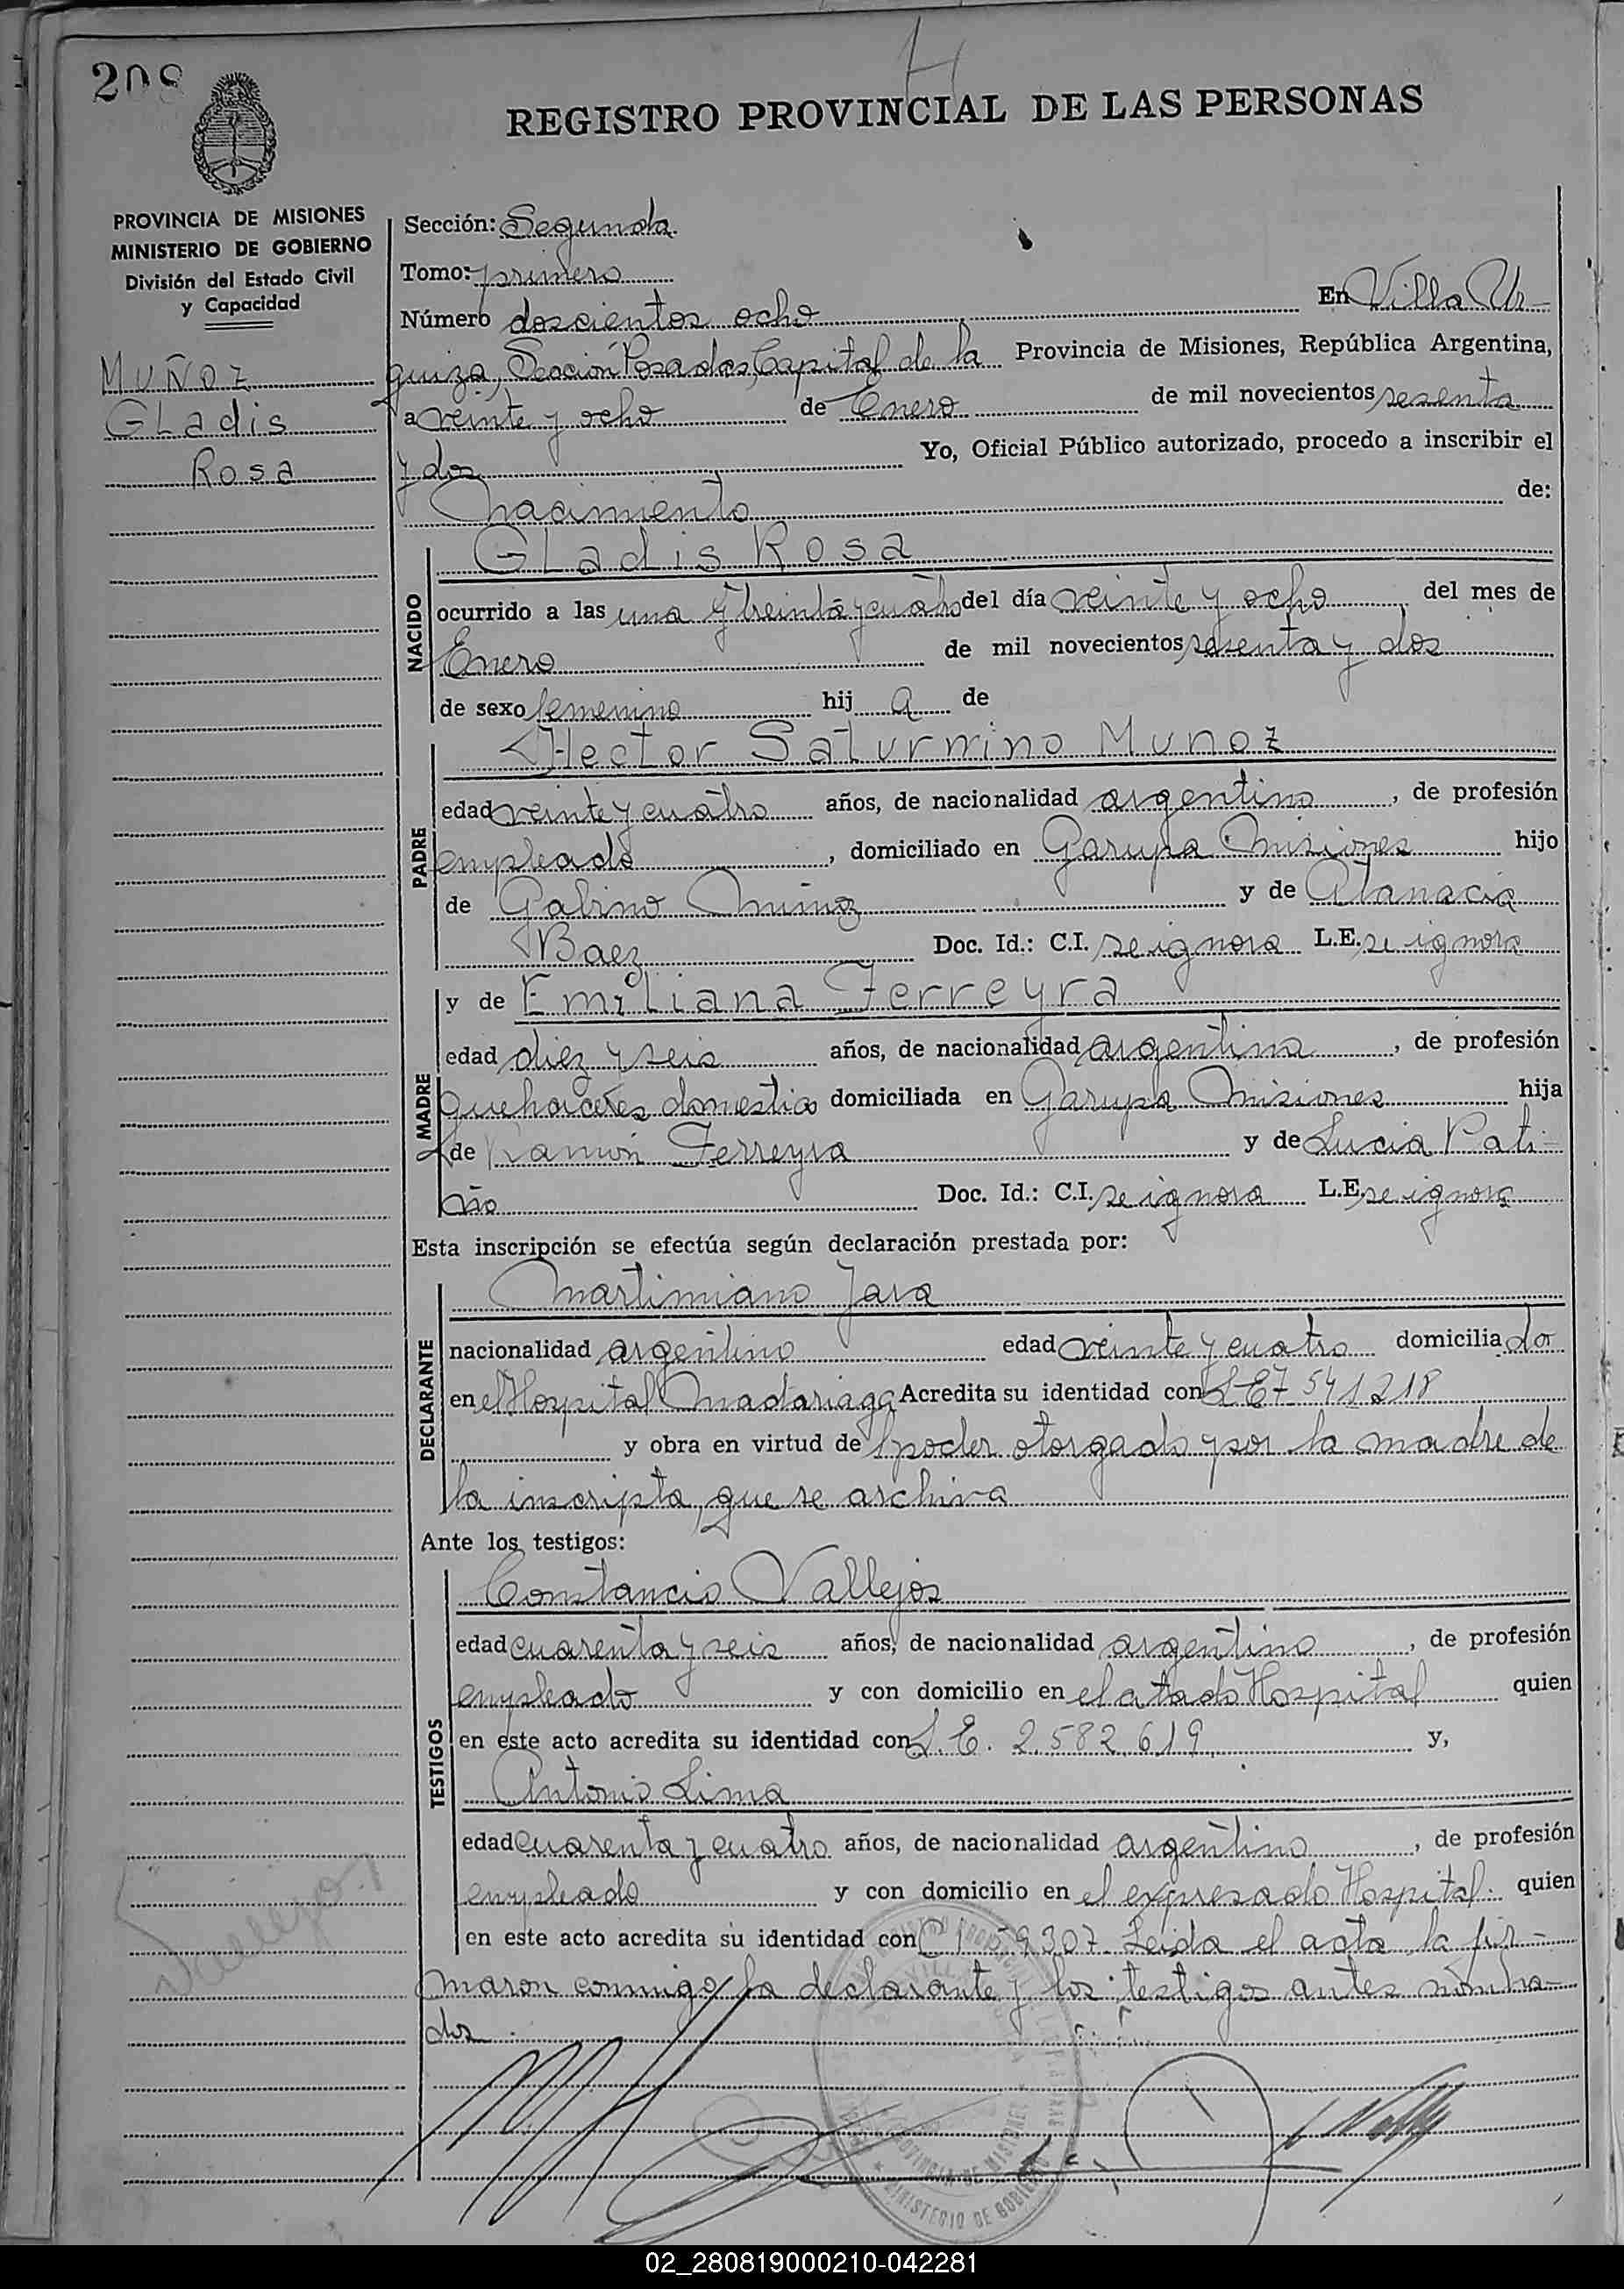 208
REGISTRO PROVINCIAL DE LAS PERSONAS
PROVINCIA DE MISIONES
MINISTERIO DE GOBIERNO
División del Estado Civil
y Capacidad
MUÑOZ
GLadis
Rosa
Sección: Segunda
Tomo: primero
Número doscientos ocho En Villa Ur-
quiza, Sección Posadas, Capital de la Provincia de Misiones, República Argentina,
a veinte y ocho de Enero de mil novecientos sesenta
y dos Yo, Oficial Público autorizado, procedo a inscribir el
Nacimiento de:
NACIDO
GLadis Rosa
ocurrido a las una y treinta y cuatro del día veinte y ocho del mes de
Enero de mil novecientos sesenta y dos
de sexo femenino hij a de
PADRE
Hector Saturnino Munoz
edad veinte y cuatro años, de nacionalidad argentino, de profesión
empleado, domiciliado en Garupa Misiones hijo
de Gabino Muñoz y de Atanacia
Baez Doc. Id.: C.I. se ignora L.E. se ignora
MADRE
y de Emiliana Ferreyra
edad diez y seis años, de nacionalidad argentina, de profesión
quehaceres domestico domiciliada en Garupa Misiones hija
de Ramón Ferreyra y de Lucia Pati-
ño Doc. Id.: C.I. se ignora L.E. se ignora
Esta inscripción se efectúa según declaración prestada por:
DECLARANTE
Martimiano Jara
nacionalidad argentino edad veinte y cuatro domicilia do
en el Hospital Madariaga Acredita su identidad con L E 7 541218
y obra en virtud de poder otorgado por la madre de
la inscripta, que se archiva
Ante los testigos:
TESTIGOS
Constancio Vallejos
edad cuarenta y seis años, de nacionalidad argentino, de profesión
empleado y con domicilio en el citado Hospital quien
en este acto acredita su identidad con L.E. 2.582.619 y,
Antonio Lima
edad cuarenta y cuatro años, de nacionalidad argentino, de profesión
empleado y con domicilio en el expresado Hospital. quien
en este acto acredita su identidad con Leida el acta la fir-
maron conmigo la declarante y los testigos antes nombra-
dos
PROVINCIA DE MISIONES
MINISTERIO DE GOBIERNO
02_280819000210-042281